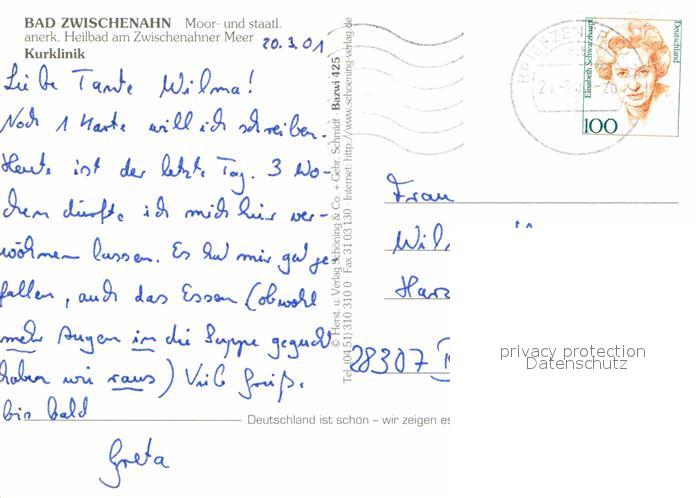 BAD ZWISCHENAHN Moor- und staatl.
anerk. Heilbad am Zwischenahner Meer
Kurklinik
20.3.01
Liebe Tante Wilma!
Noch 1 Karte will ich schreiben.
Heute ist der letzte Tag. 3 Wo-
chen durfte ich mich hier ver-
wöhnen lassen. Es hat mir gut ge-
fallen, auch das Essen (obwohl
mehr Augen in die Suppe geguckt
haben wie raus) Viele Grüße.
bis bald
Greta
Deutschland ist schön – wir zeigen es
© Herst. u. Verlag Schöning & Co. + Gebr. Schmidt · Bazwi 425
Tel. (04 51) 310 310 0 · Fax 31 03 130 · Internet: http://www.schoening-verlag.de
BRIEFZENTR
Elisabeth Schwarzhaupt
Deutschland
100
Frau
Wil
Harz
28307
privacy protection
Datenschutz